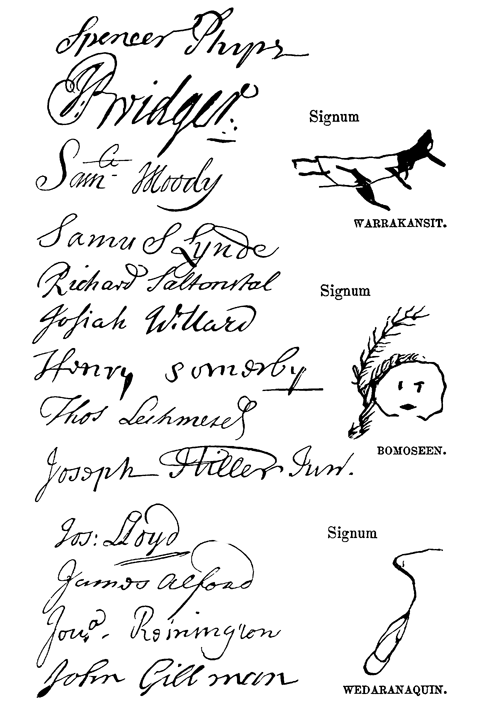 Spencer Phips
J Bridger.
Saml Moody
Signum
WARRAKANSIT.
Samu S Lynde
Richard Saltonstal
Josiah Willard
Signum
Henry Somerby
Thos Lechmere
BOMOSEEN.
Joseph Hiller Junr.
Jos: Lloyd
Signum
James Alford
Jona. Remington
John Gillman
WEDARANAQUIN.